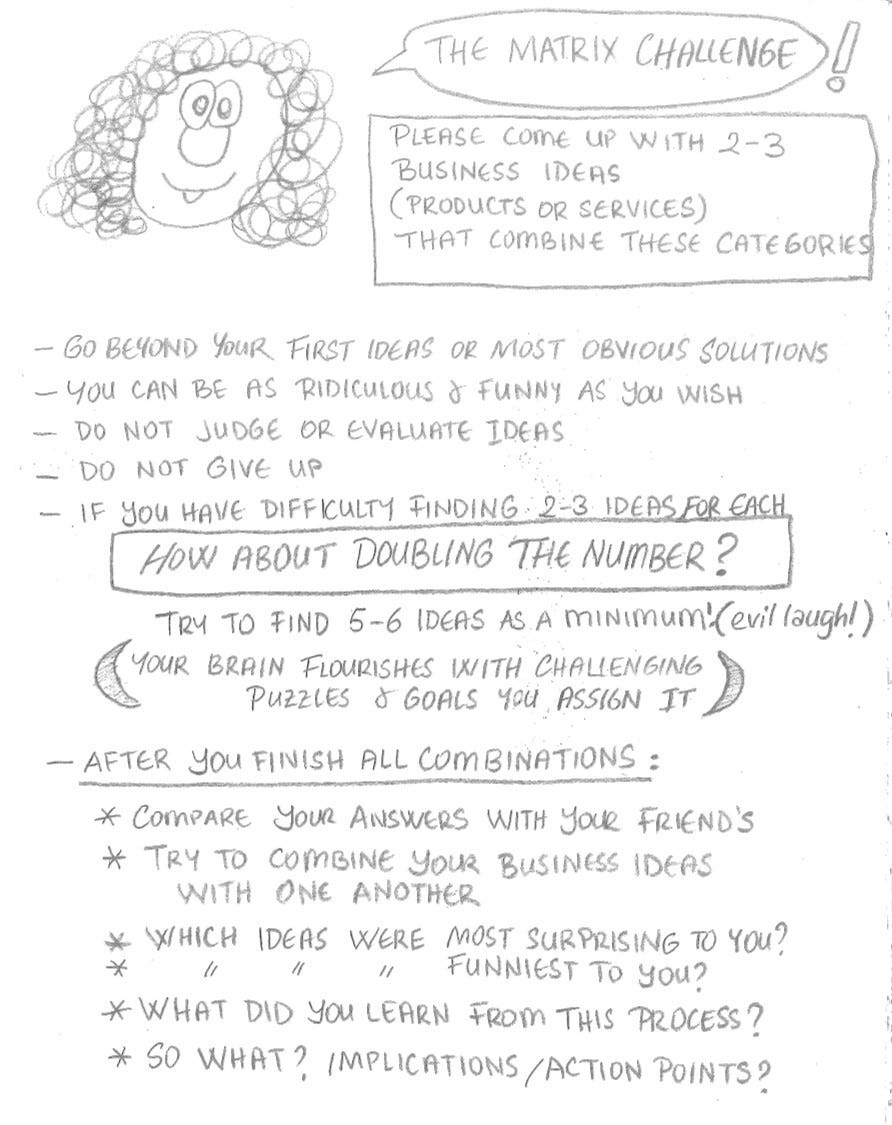 THE MATRIX CHALLENGE!
PLEASE COME UP WITH 2-3
BUSINESS IDEAS
(PRODUCTS OR SERVICES)
THAT COMBINE THESE CATEGORIES
- GO BEYOND YOUR FIRST IDEAS OR MOST OBVIOUS SOLUTIONS
- YOU CAN BE AS RIDICULOUS & FUNNY AS YOU WISH
- DO NOT JUDGE OR EVALUATE IDEAS
- DO NOT GIVE UP
- IF YOU HAVE DIFFICULTY FINDING 2-3 IDEAS FOR EACH
HOW ABOUT DOUBLING THE NUMBER?
TRY TO FIND 5-6 IDEAS AS A MINIMUM! (evil laugh!)
(YOUR BRAIN FLOURISHES WITH CHALLENGING
PUZZLES & GOALS YOU ASSIGN IT)
- AFTER YOU FINISH ALL COMBINATIONS:
* COMPARE YOUR ANSWERS WITH YOUR FRIEND'S
* TRY TO COMBINE YOUR BUSINESS IDEAS
WITH ONE ANOTHER
* WHICH IDEAS WERE MOST SURPRISING TO YOU?
* " " " FUNNIEST TO YOU?
* WHAT DID YOU LEARN FROM THIS PROCESS?
* SO WHAT? IMPLICATIONS/ACTION POINTS?